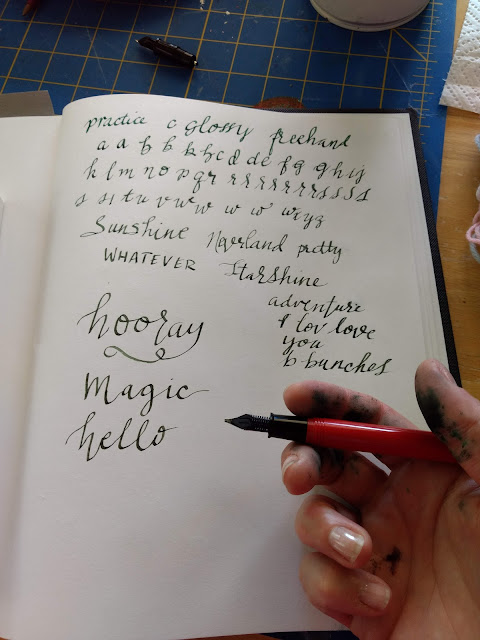 practice c glossy freehand
a a b b b k b c d de f g g h i j
k l m n o p q r r r r r r r r s s s s
s s t u v w w w w w x y z
Sunshine Neverland pretty
WHATEVER Starshine
adventure
I lov love
you
b bunches
hooray
Magic
hello